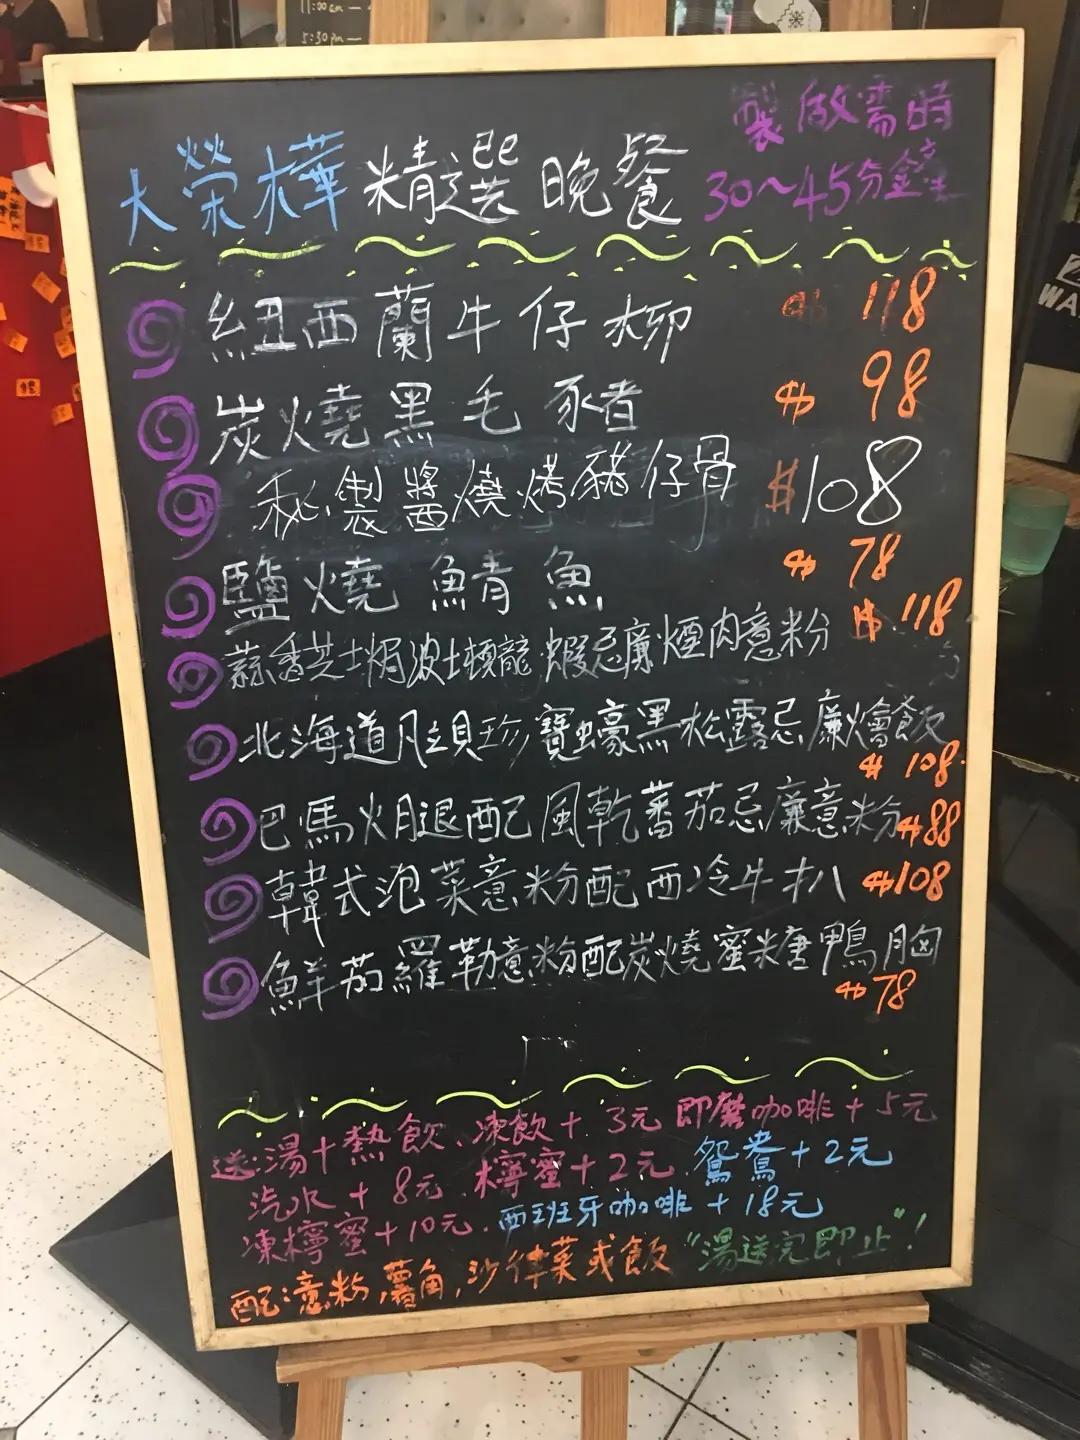 11:00am —
5:30pm —
製做需時
大榮樺 精選晚餐
30~45分鐘
紐西蘭牛仔柳 $ 118
炭燒黑毛豬 $ 98
秘製醬燒烤豬仔骨 $108
鹽燒鯖魚 $ 78
$ 118
蒜香芝士焗波士頓龍蝦忌廉煙肉意粉
北海道帶貝珍寶蠔黑松露忌廉燴飯
$ 108
巴馬火腿配風乾蕃茄忌廉意粉 $88
韓式泡菜意粉配西冷牛扒 $108
鮮茄羅勒意粉配炭燒蜜糖鴨胸
$78
送:湯+熱飲、凍飲+3元 即磨咖啡+5元
汽水+8元. 檸蜜+2元. 鴛鴦+2元
凍檸蜜+10元. 西班牙咖啡+18元
配:意粉,薯角,沙律菜或飯 "湯送完即止"!